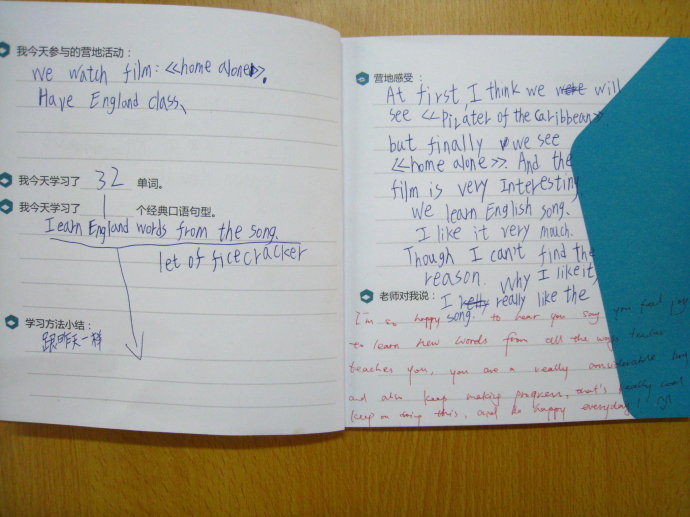 我今天参与的营地活动：
We watch film: <<home alone>>.
Have England class、
我今天学习了 32 单词。
我今天学习了 1 个经典口语句型。
Iearn England words from the song.
let of ficecracker
学习方法小结：
跟昨天一样
营地感受：
At first, I think we will
see <<Pirater of the Caribbean>>
but finally we see
<<home alone>>. And the
film is very Interesting
We learn English song.
I like it very much.
Though I can't find the
reason. Why I like it,
I really like the
song.
老师对我说：
I'm so happy to hear you say you feel
to learn new words from all the ways
teaches you, you are a really considerable
and also keep making progress, that's really cool
keep on doing this, and be happy everyday!